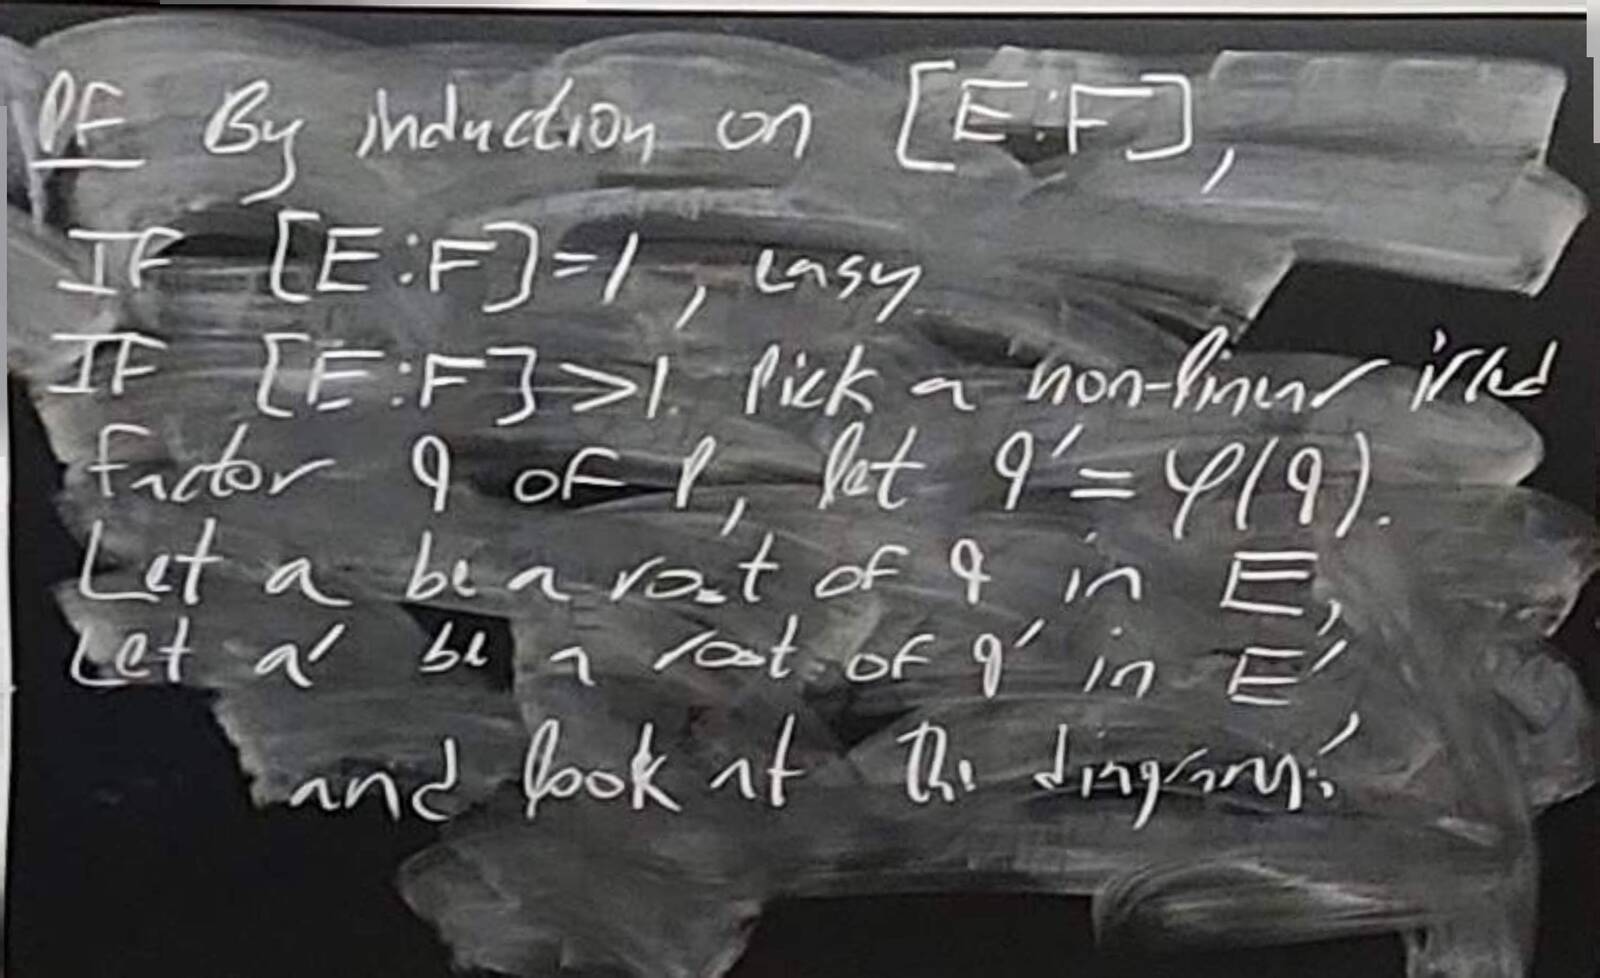 PF By induction on [E:F],
IF [E:F]=1, easy
IF [E:F]>1. Pick a non-linear irred
factor q of P, let q'=φ(q).
Let a be a root of q in E,
Let a' be a root of q' in E',
and look at the diagram: